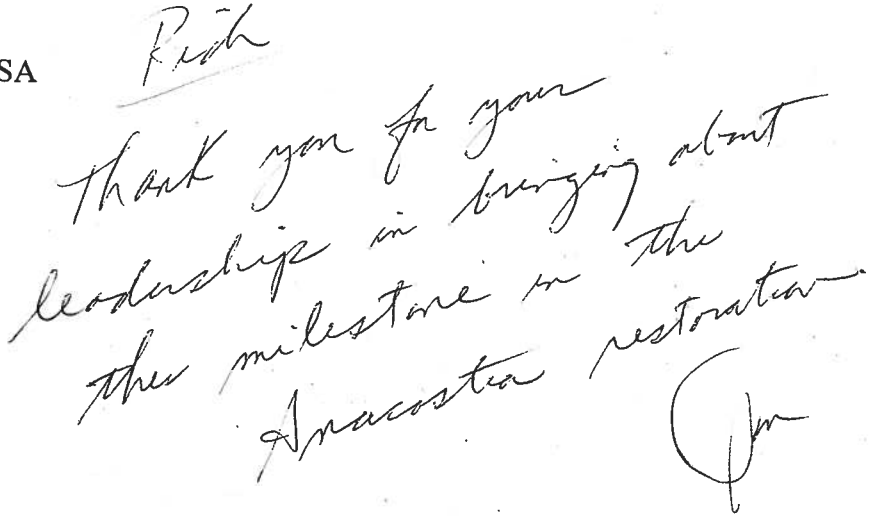 SA
Rich
Thank you for your
leadership in bringing about
this milestone in the
Anacostia restoration.